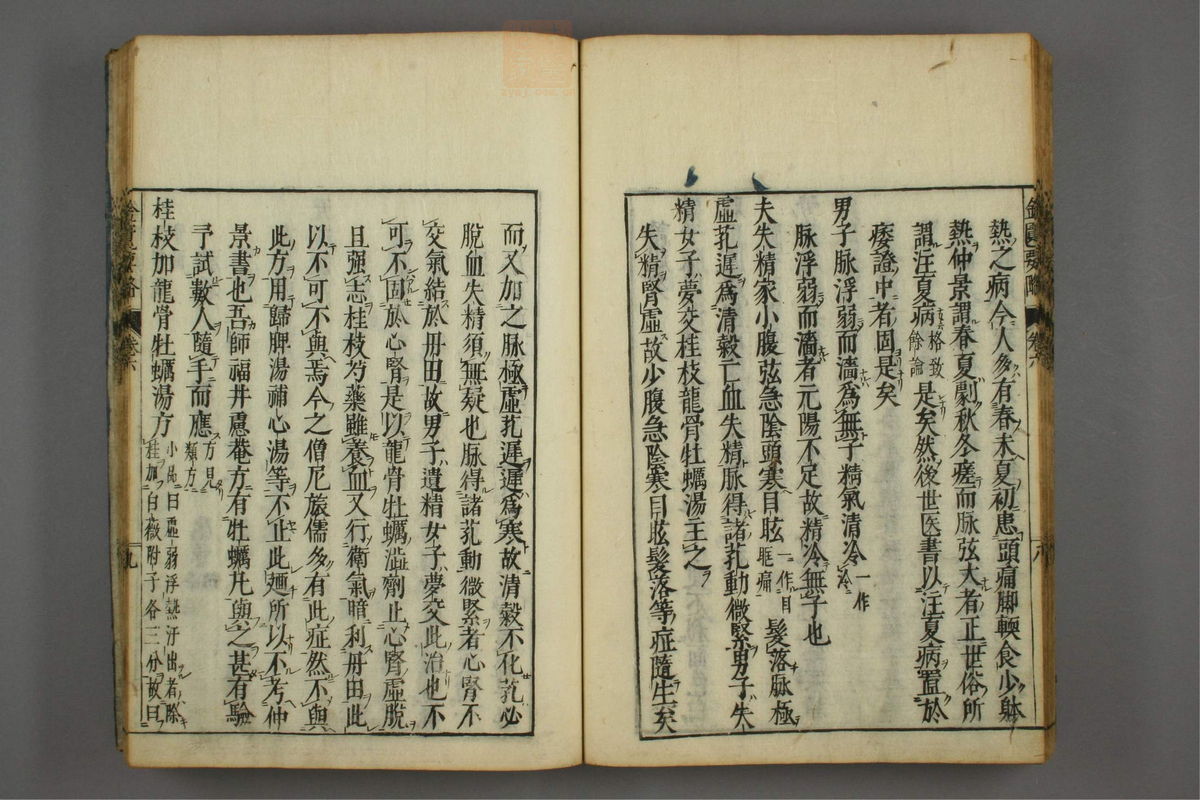 熱之病今人多有春末夏初患頭痛脚軟食少躰
熱仲景謂春夏劇秋冬瘥而脉弦大者正世俗所
謂注夏病格致餘論是矣然後世医書以注夏病置於
痿證中者固是矣
男子脉浮弱而濇為無子精氣清冷一作冷
脉浮弱而濇者元陽不足故精冷無子也
夫失精家小腹弦急陰頭寒目眩一作目眶痛髮落脉極
虛芤遲為清穀亡血失精脉得諸芤動微緊男子失
精女子夢交桂枝龍骨牡蠣湯主之
失精腎虛故少腹急陰寒目眩髮落等症隨生矣
金匱要略
卷六
八
而又加之脉極虛芤遲遲為寒故清穀不化芤必
脫血失精須無疑也脉得諸芤動微緊者心腎不
交氣結於丹田故男子遺精女子夢交此治也不
可不固於心腎是以龍骨牡蠣澁劑止心腎虛脫
且强志桂枝芍藥雖養血又行衛氣暗利丹田此
以不可不與焉今之僧尼旅儒多有此症然不與
此方用歸脾湯補心湯等不止此廼所以不考仲
景書也吾師福井慮菴方有牡蠣凡與之甚有驗
予試數人隨手而應方見類方
桂枝加龍骨牡蠣湯方小品曰虛弱浮熱汗出者除桂加白薇附子各三分故曰
金匱要略
卷六
九